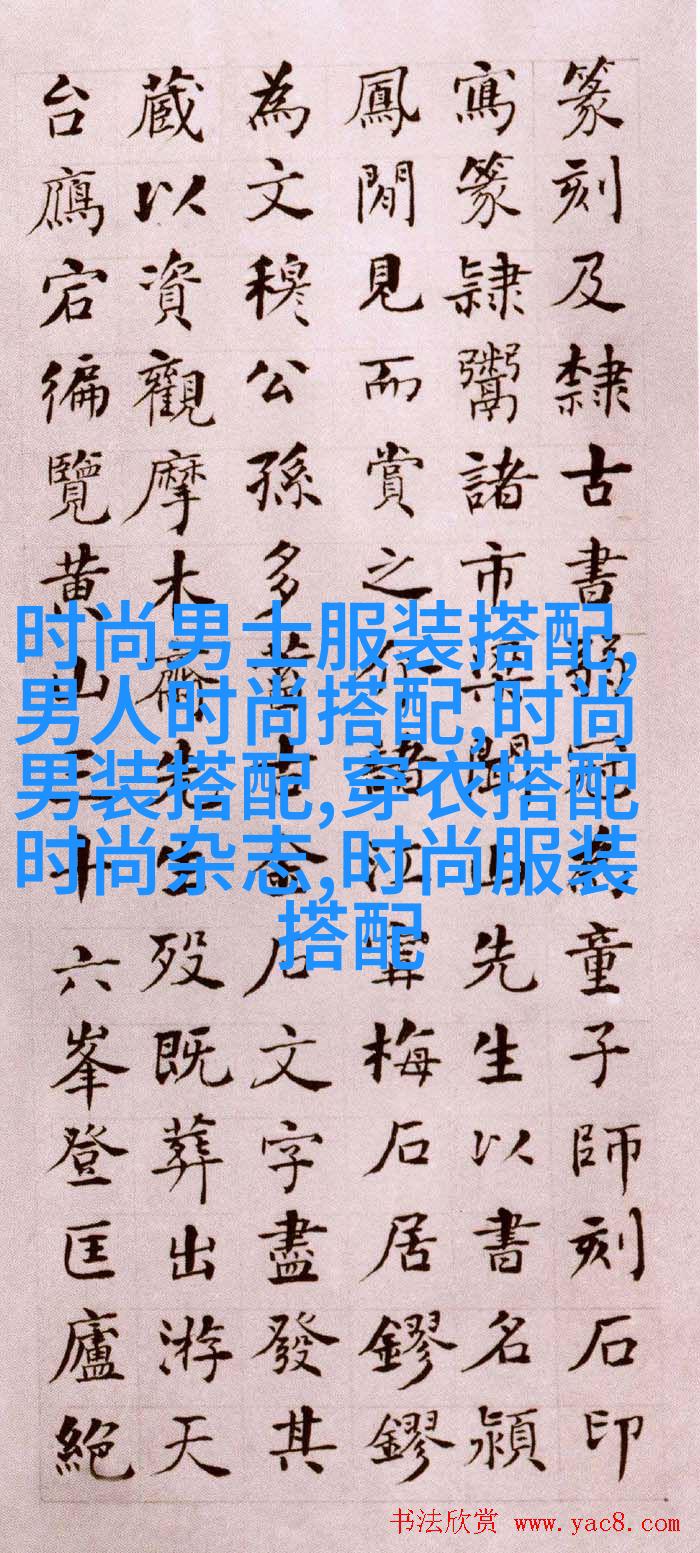 篆刻及隸古書弱冠為童子師刻石印
寫篆隸鬻諸市梁聞山先生以書名潁
鳳閒見而賞之介諸江寧梅石居鏐鏐
為文穆公孫多蓄古金石文字盡發其
蔵以資觀摩木齋先生歿既葬出游天
台鴈宕徧覽黃山三十六峯登匡廬絕
时尚男士服装搭配,
男人时尚搭配,时尚
男装搭配,穿衣搭配
时尚杂志,时尚服装
搭配
书法欣赏 www.yac8.com